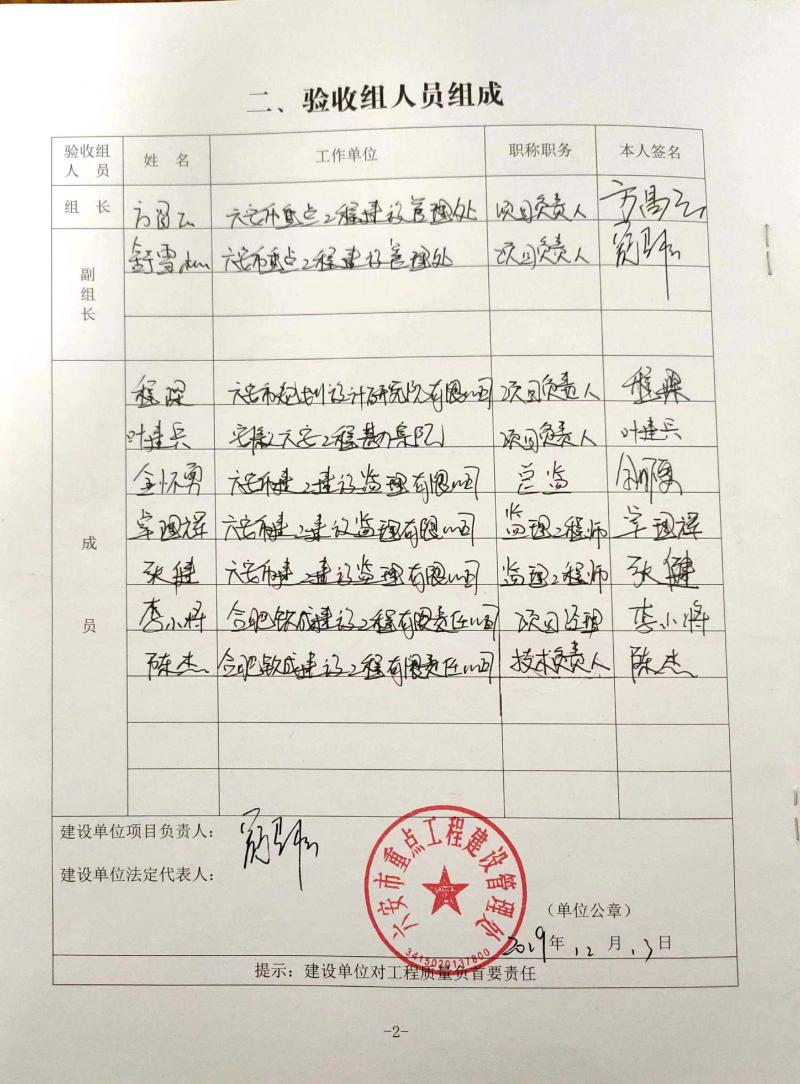 二、验收组人员组成
验收组人员 姓名 工作单位 职称职务 本人签名
组长 六安市重点工程建设管理处 项目负责人
副组长 六安市重点工程建设管理处 项目负责人
成员
程琛 六安市规划设计研究院有限公司 项目负责人 程琛
叶建兵 安徽六安工程勘察院 项目负责人 叶建兵
金怀勇 六安市建工建设监理有限公司 总监
卓国辉 六安市建工建设监理有限公司 监理工程师 卓国辉
张健 六安市建工建设监理有限公司 监理工程师 张健
李小将 合肥钦成建设工程有限责任公司 项目经理 李小将
陈杰 合肥钦成建设工程有限责任公司 技术负责人 陈杰
建设单位项目负责人：
建设单位法定代表人：
六安市重点工程建设管理处
3415020137800
（单位公章）
2019年12月13日
提示：建设单位对工程质量负首要责任
-2-